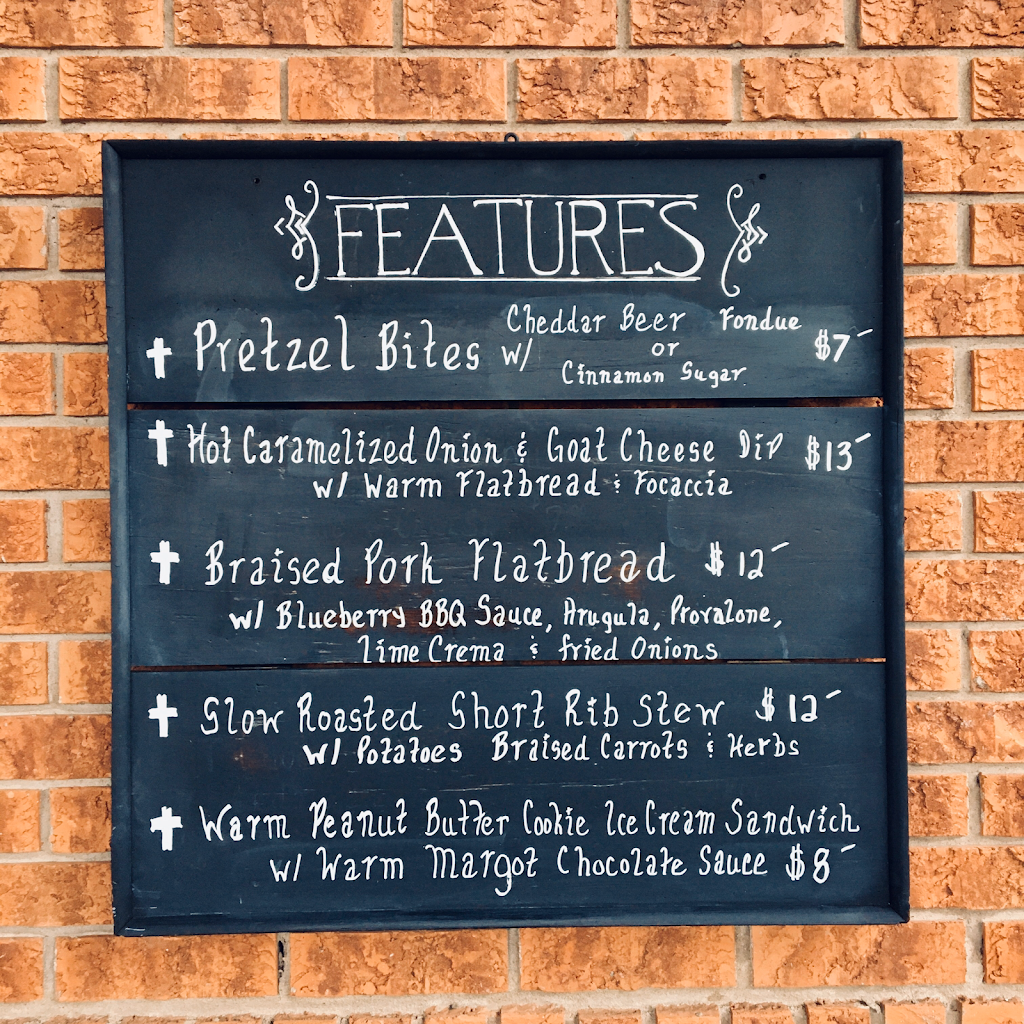 FEATURES
Pretzel Bites w/ Cheddar Beer Fondue or Cinnamon Sugar $7-
Hot Caramelized Onion & Goat Cheese Dip $13-
w/ Warm Flatbread & Focaccia
Braised Pork Flatbread $12-
w/ Blueberry BBQ Sauce, Arugula, Provalone,
Lime Crema & Fried Onions
Slow Roasted Short Rib Stew $12-
w/ Potatoes Braised Carrots & Herbs
Warm Peanut Butter Cookie Ice Cream Sandwich
w/ Warm Margot Chocolate Sauce $8-